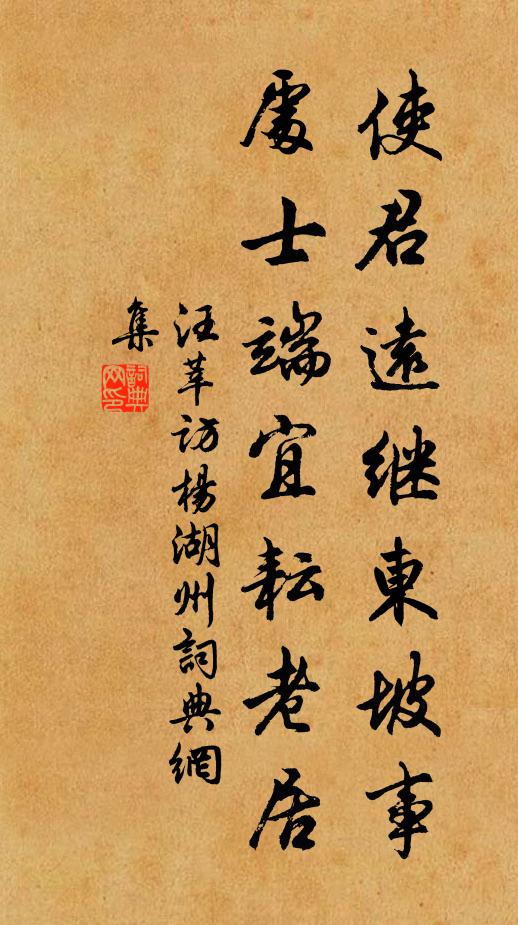 使君遠継東坡事
處士端宜耘老居
汪莘访楊湖州詞典網
集
詞典
网印